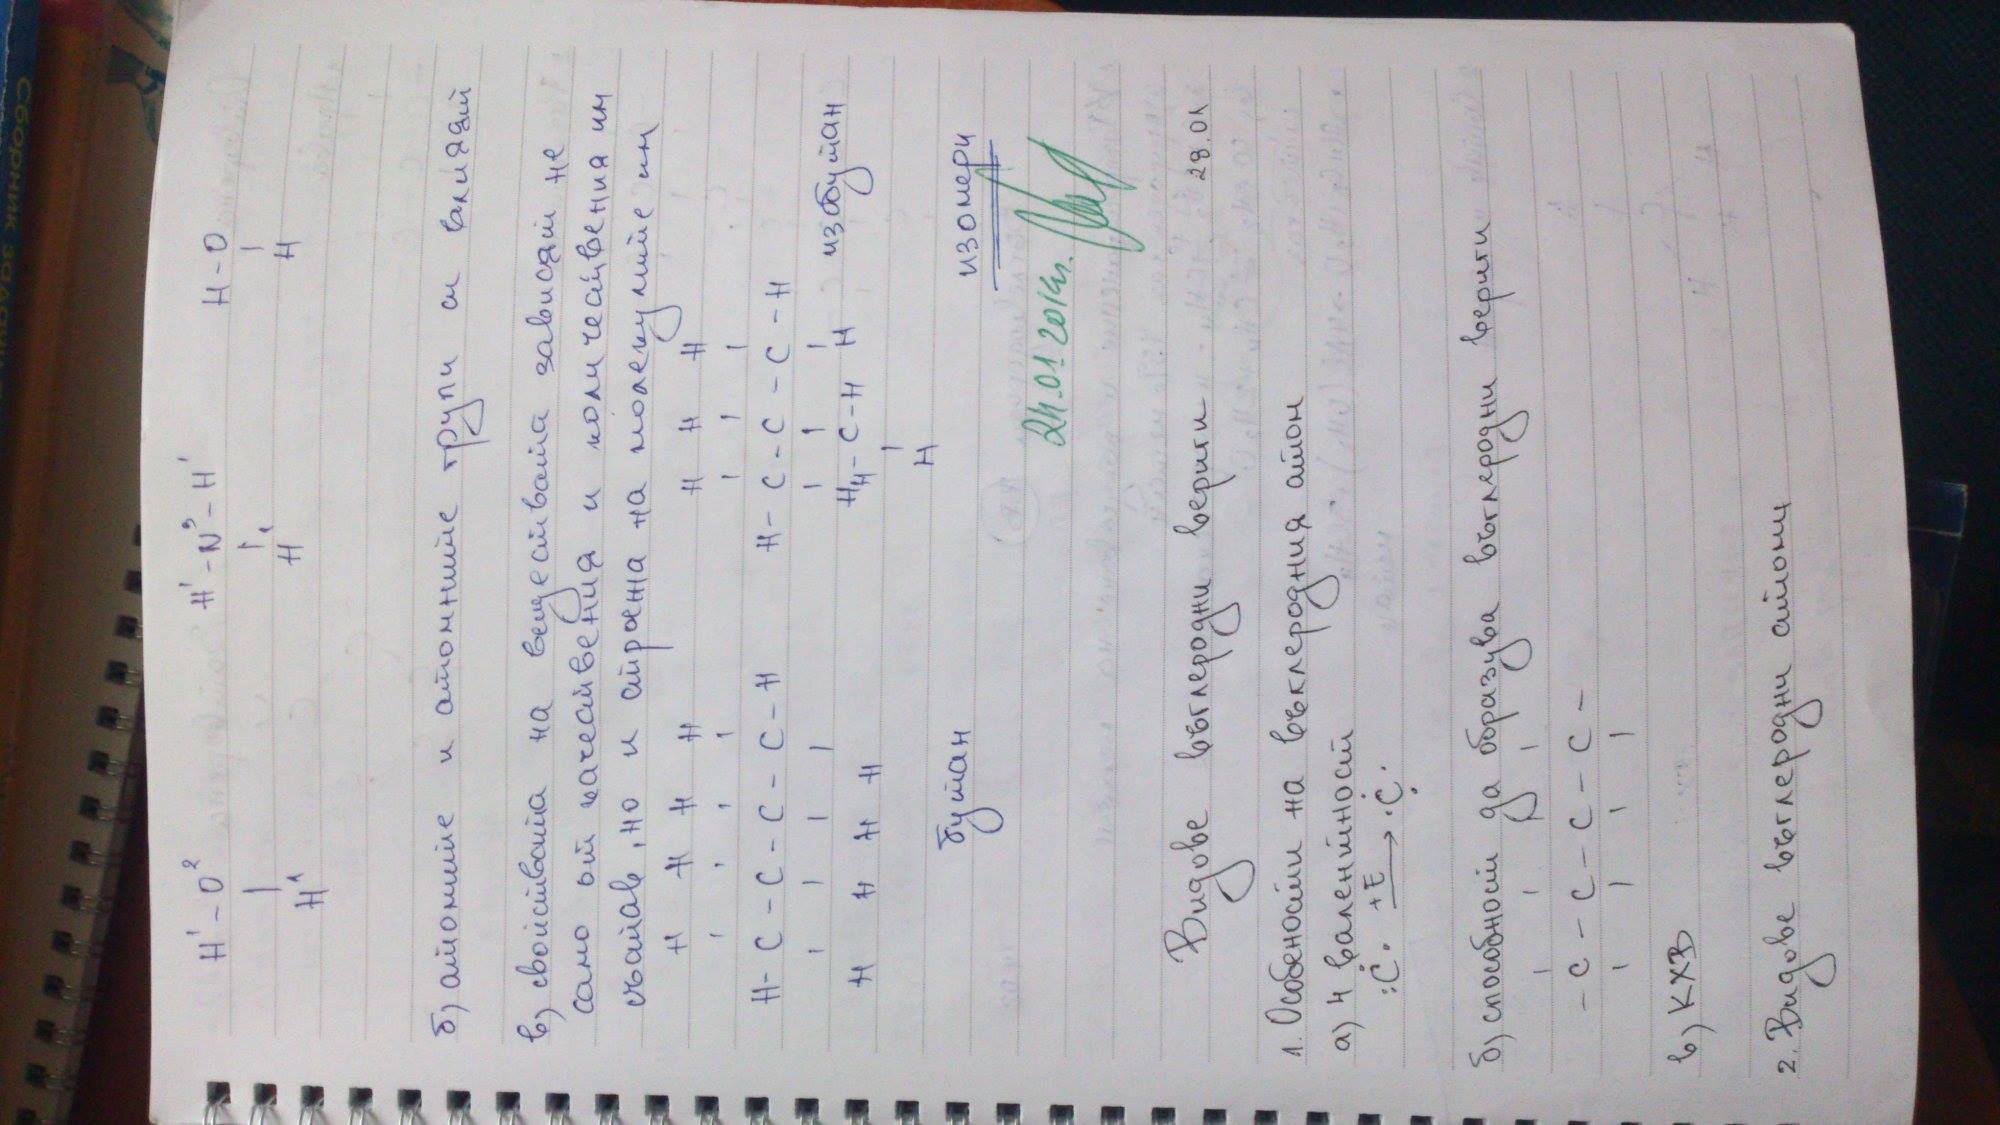 H¹-O²
|
H¹
H¹-N³-H¹
|
H¹
H-O
|
H
б) атомите и атомните групи си влияят
в) свойствата на веществата зависят не
само от качествения и количествения им
състав, но и строежа на молекулите им
H H H H
| | | |
H-C-C-C-C-H
| | | |
H H H H
бутан
H H H
| | |
H-C-C-C-H
| | |
H H-C-H H
|
H
изобутан
изомери
24.01.2014г.
Видове въглеродни вериги 28.01
1. Особености на въклеродния атом
а) 4 валентност
:C· +E → ·C·
б) способност да образува въглеродни вериги
| | | |
-C-C-C-C-
| | | |
в) КХВ
2. Видове въглеродни атоми
Сборник зада